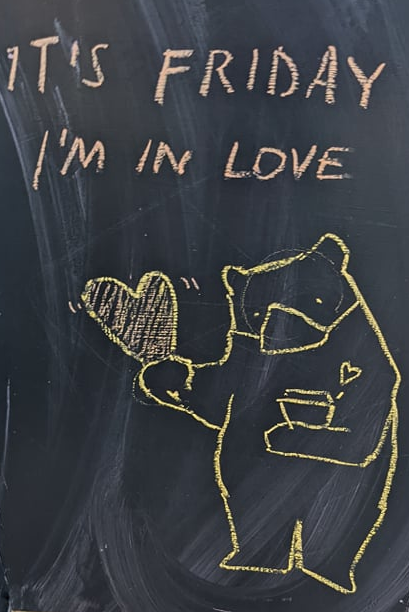 IT'S FRIDAY
I'M IN LOVE